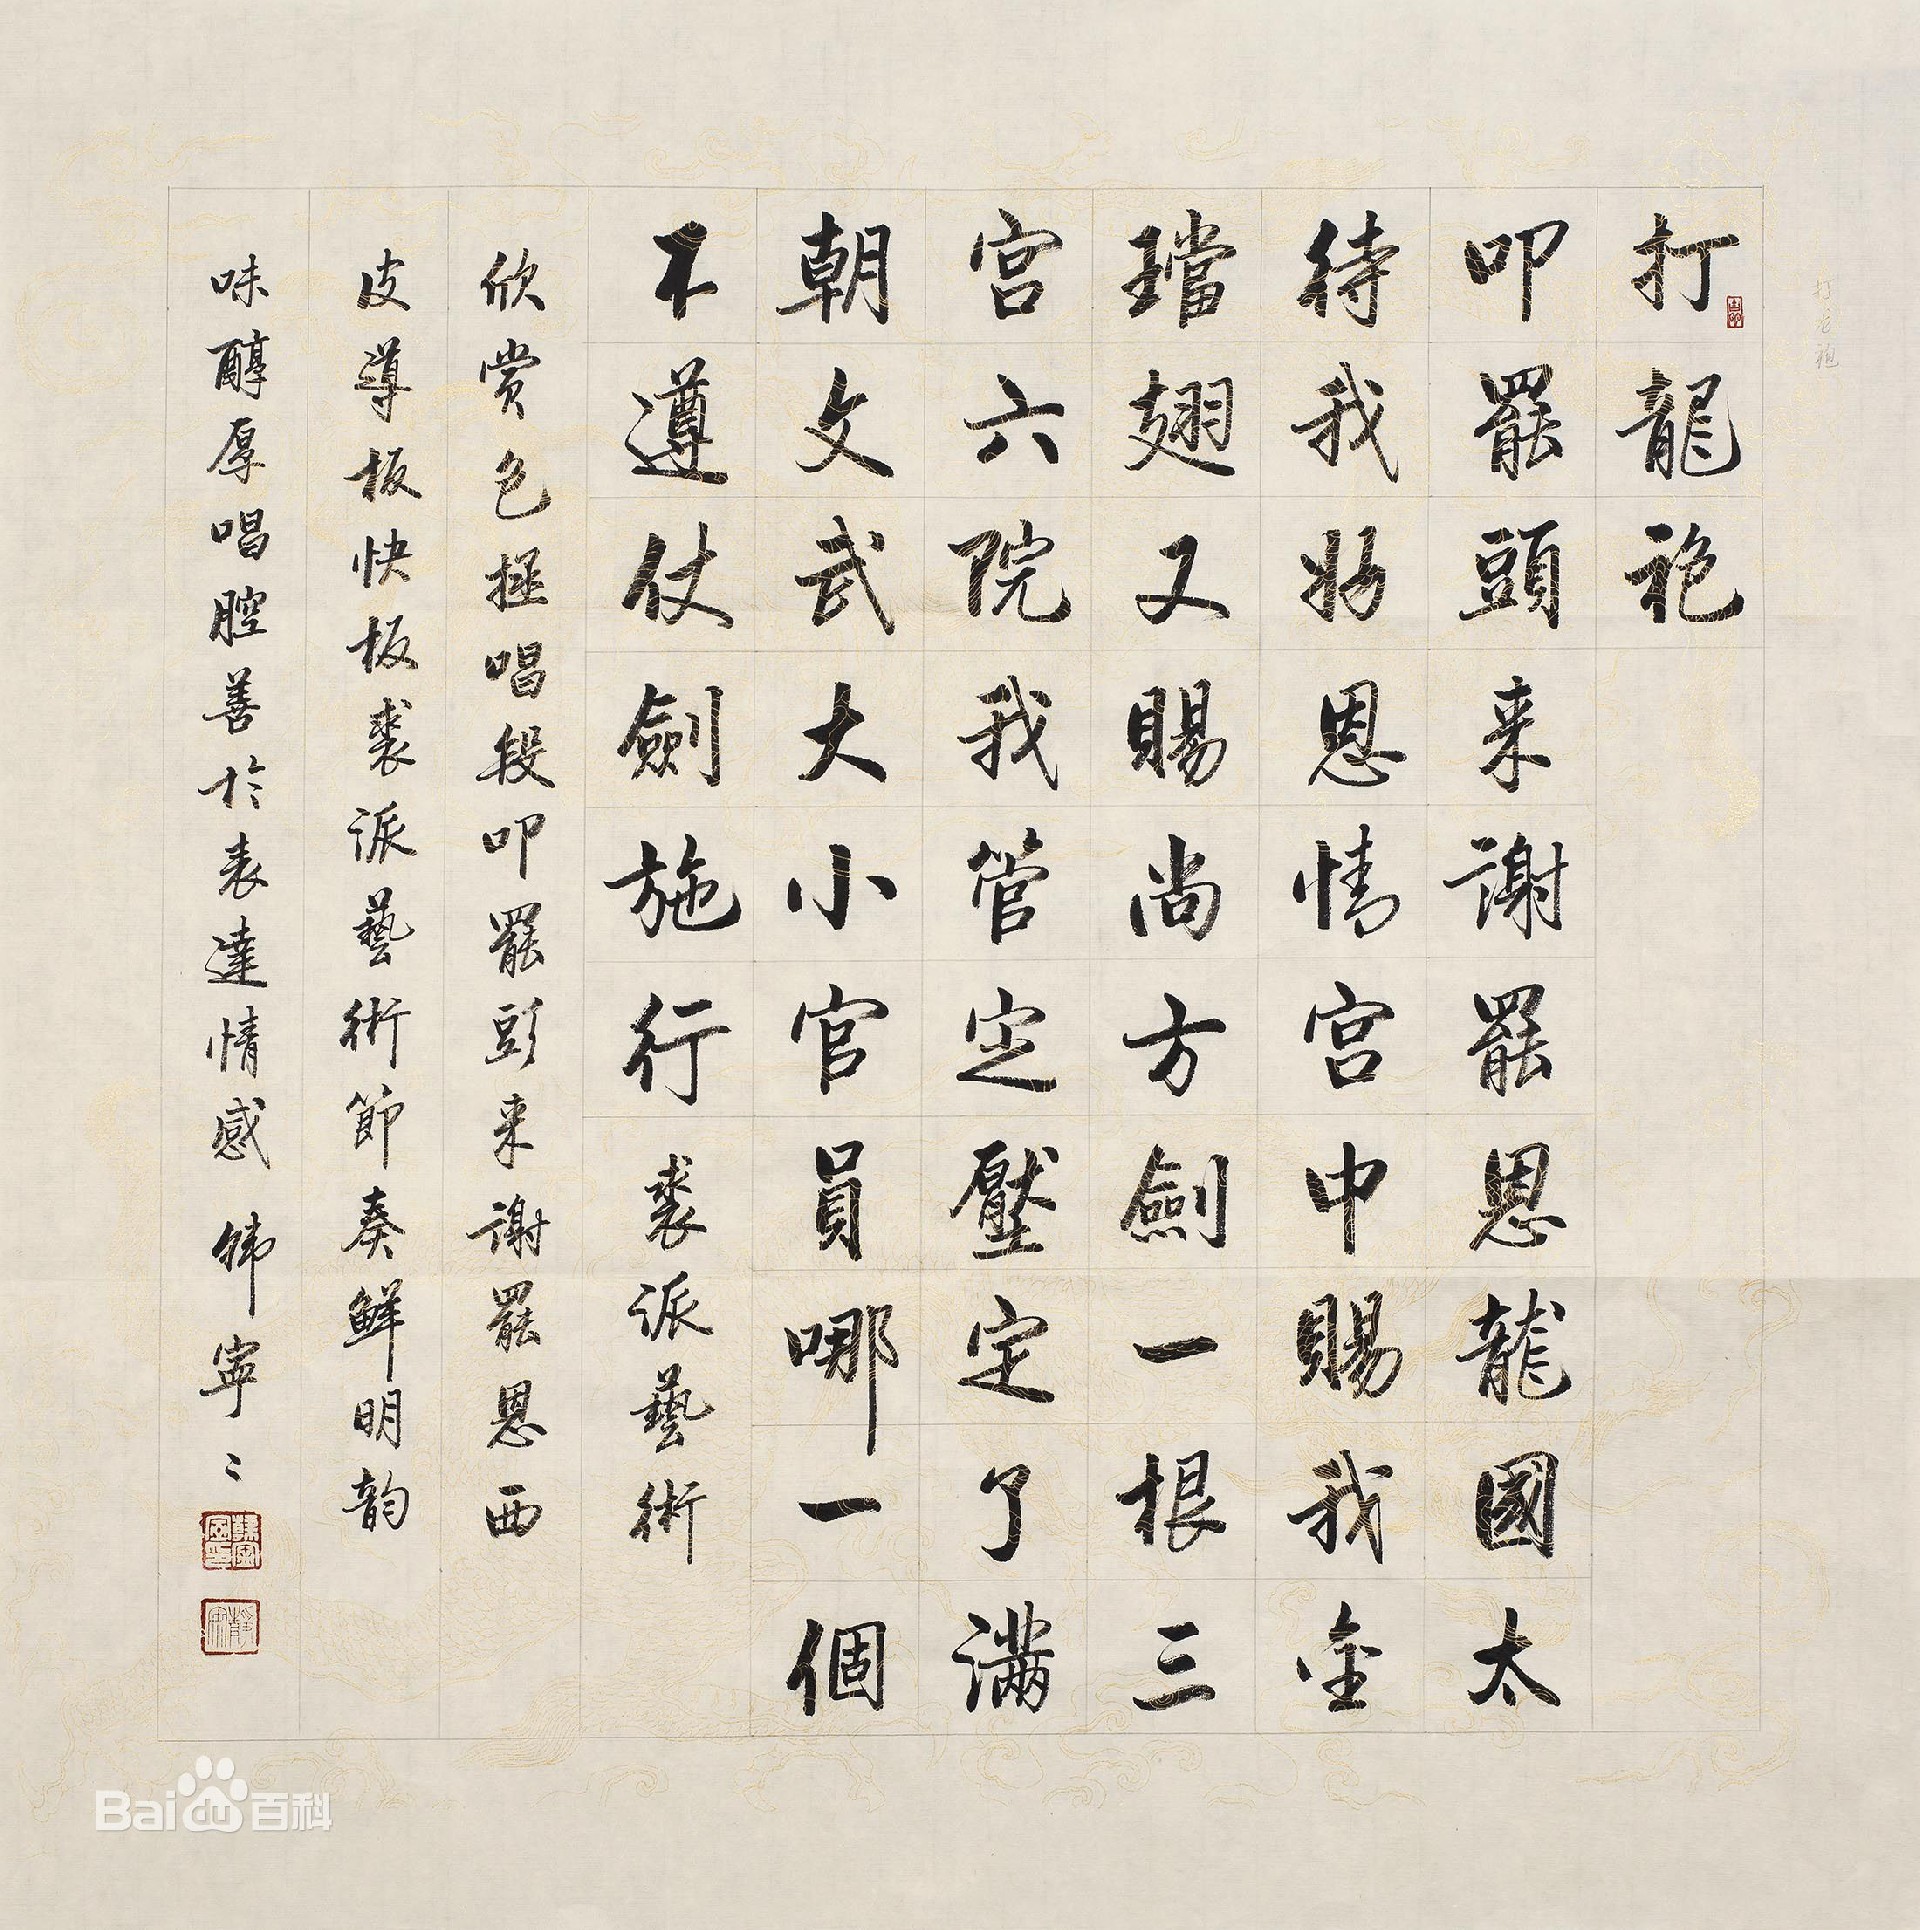 打龙袍
打龍袍
叩罷頭来謝罷恩龍國太
待我好恩情宫中賜我金
璫翅又賜尚方劍一根三
宫六院我管定壓定了滿
朝文武大小官員哪一個
不遵仗劍施行 裘派藝術
欣赏包拯唱段叩罷頭来谢罷恩西
皮導板快板裘派藝術節奏鲜明韵
味醇厚唱腔善於表達情感 韩寧〻
Baidu百科